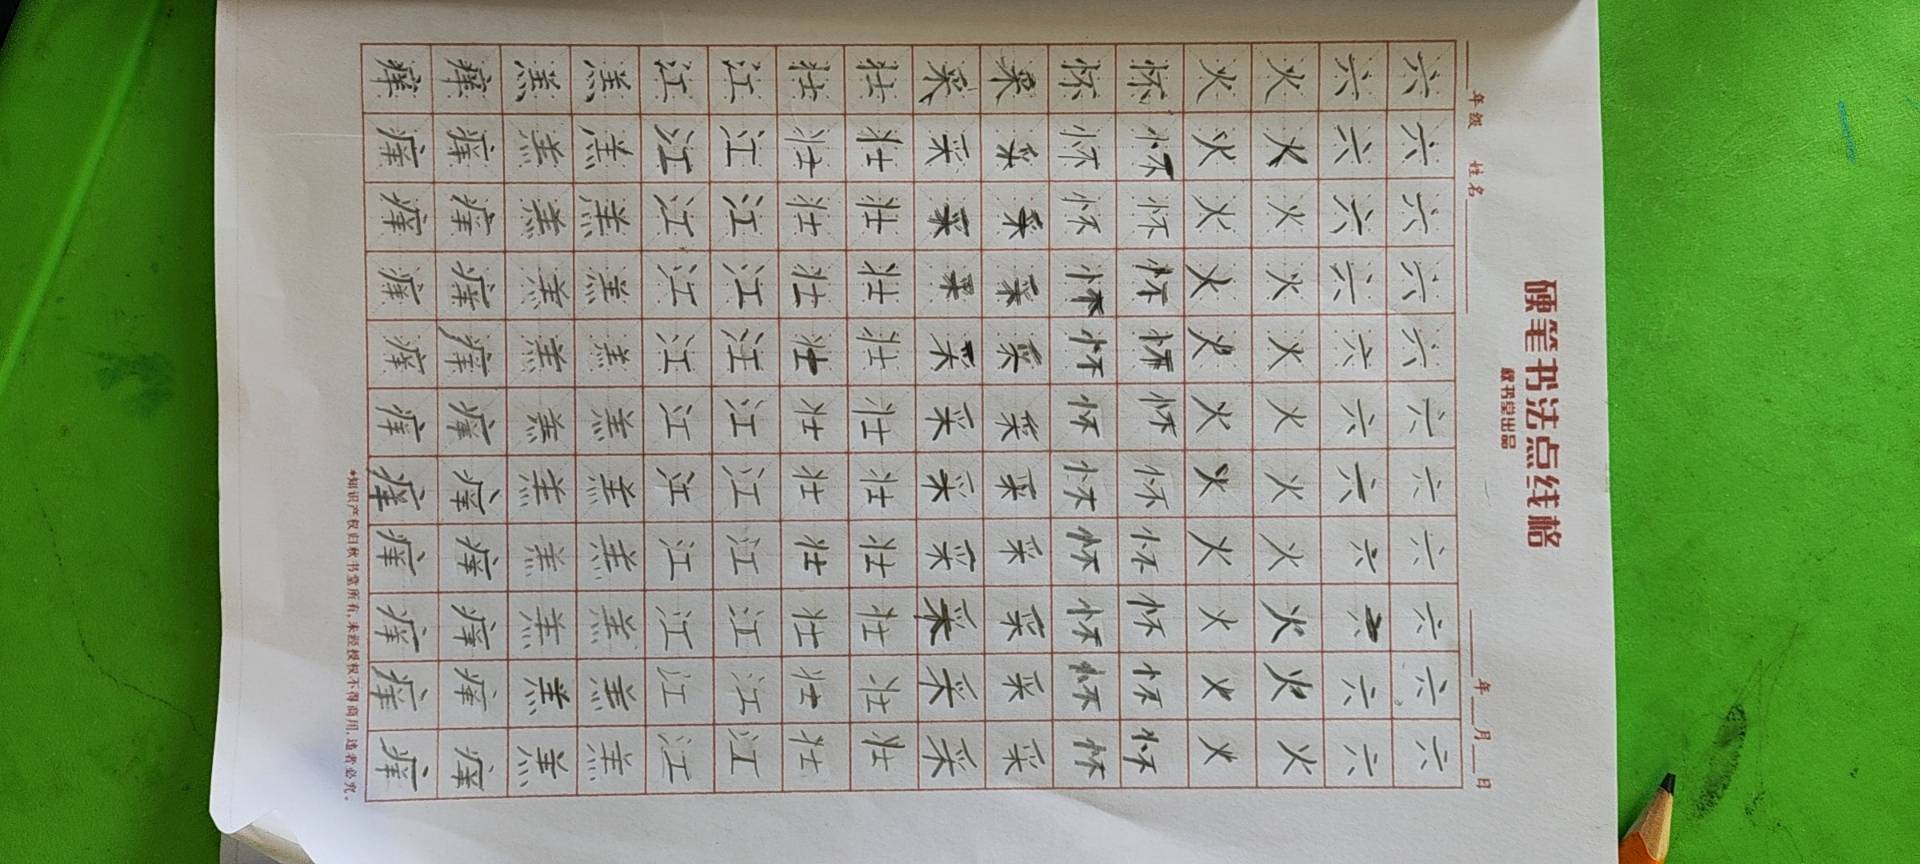 硬笔书法点线格
秋书堂出品
年级 姓名 年 月 日
六六六六六六六六六六六
六六六六六六六六六六六
火火火火火火火火火火火
火火火火火火火火火火火
怀怀怀怀怀怀怀怀怀怀怀
怀怀怀怀怀怀怀怀怀怀怀
采采采采采采采采采采采
采采采采采采采采采采采
壮壮壮壮壮壮壮壮壮壮壮
壮壮壮壮壮壮壮壮壮壮壮
江江江江江江江江江江江
江江江江江江江江江江江
羔羔羔羔羔羔羔羔羔羔羔
羔羔羔羔羔羔羔羔羔羔羔
痒痒痒痒痒痒痒痒痒痒痒
痒痒痒痒痒痒痒痒痒痒痒
*知识产权归秋书堂所有,未经授权不得商用,违者必究。